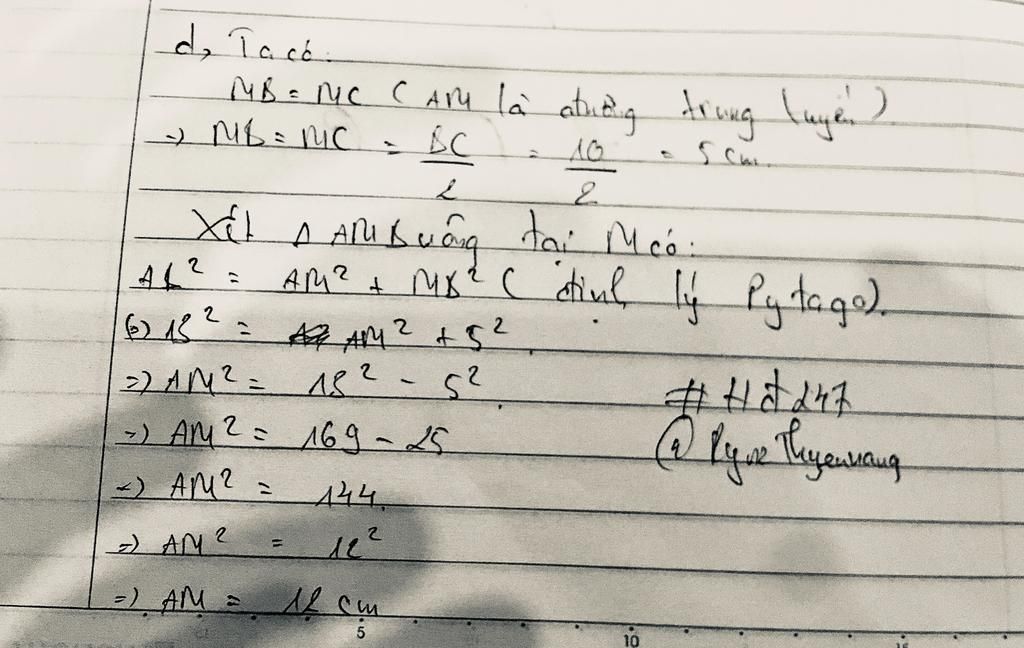 d, Ta có:
MB = MC ( AM là đường trung tuyến )
=> MB = MC = BC/2 = 10/2 = 5 cm.
Xét Δ AMB vuông tại M có:
AB² = AM² + MB² ( định lý Pytago).
(=) 13² = AM² + 5²
=) AM² = 13² - 5²
=) AM² = 169 - 25
=) AM² = 144
=) AM² = 12²
=) AM = 12 cm
# Hđ247
5
10